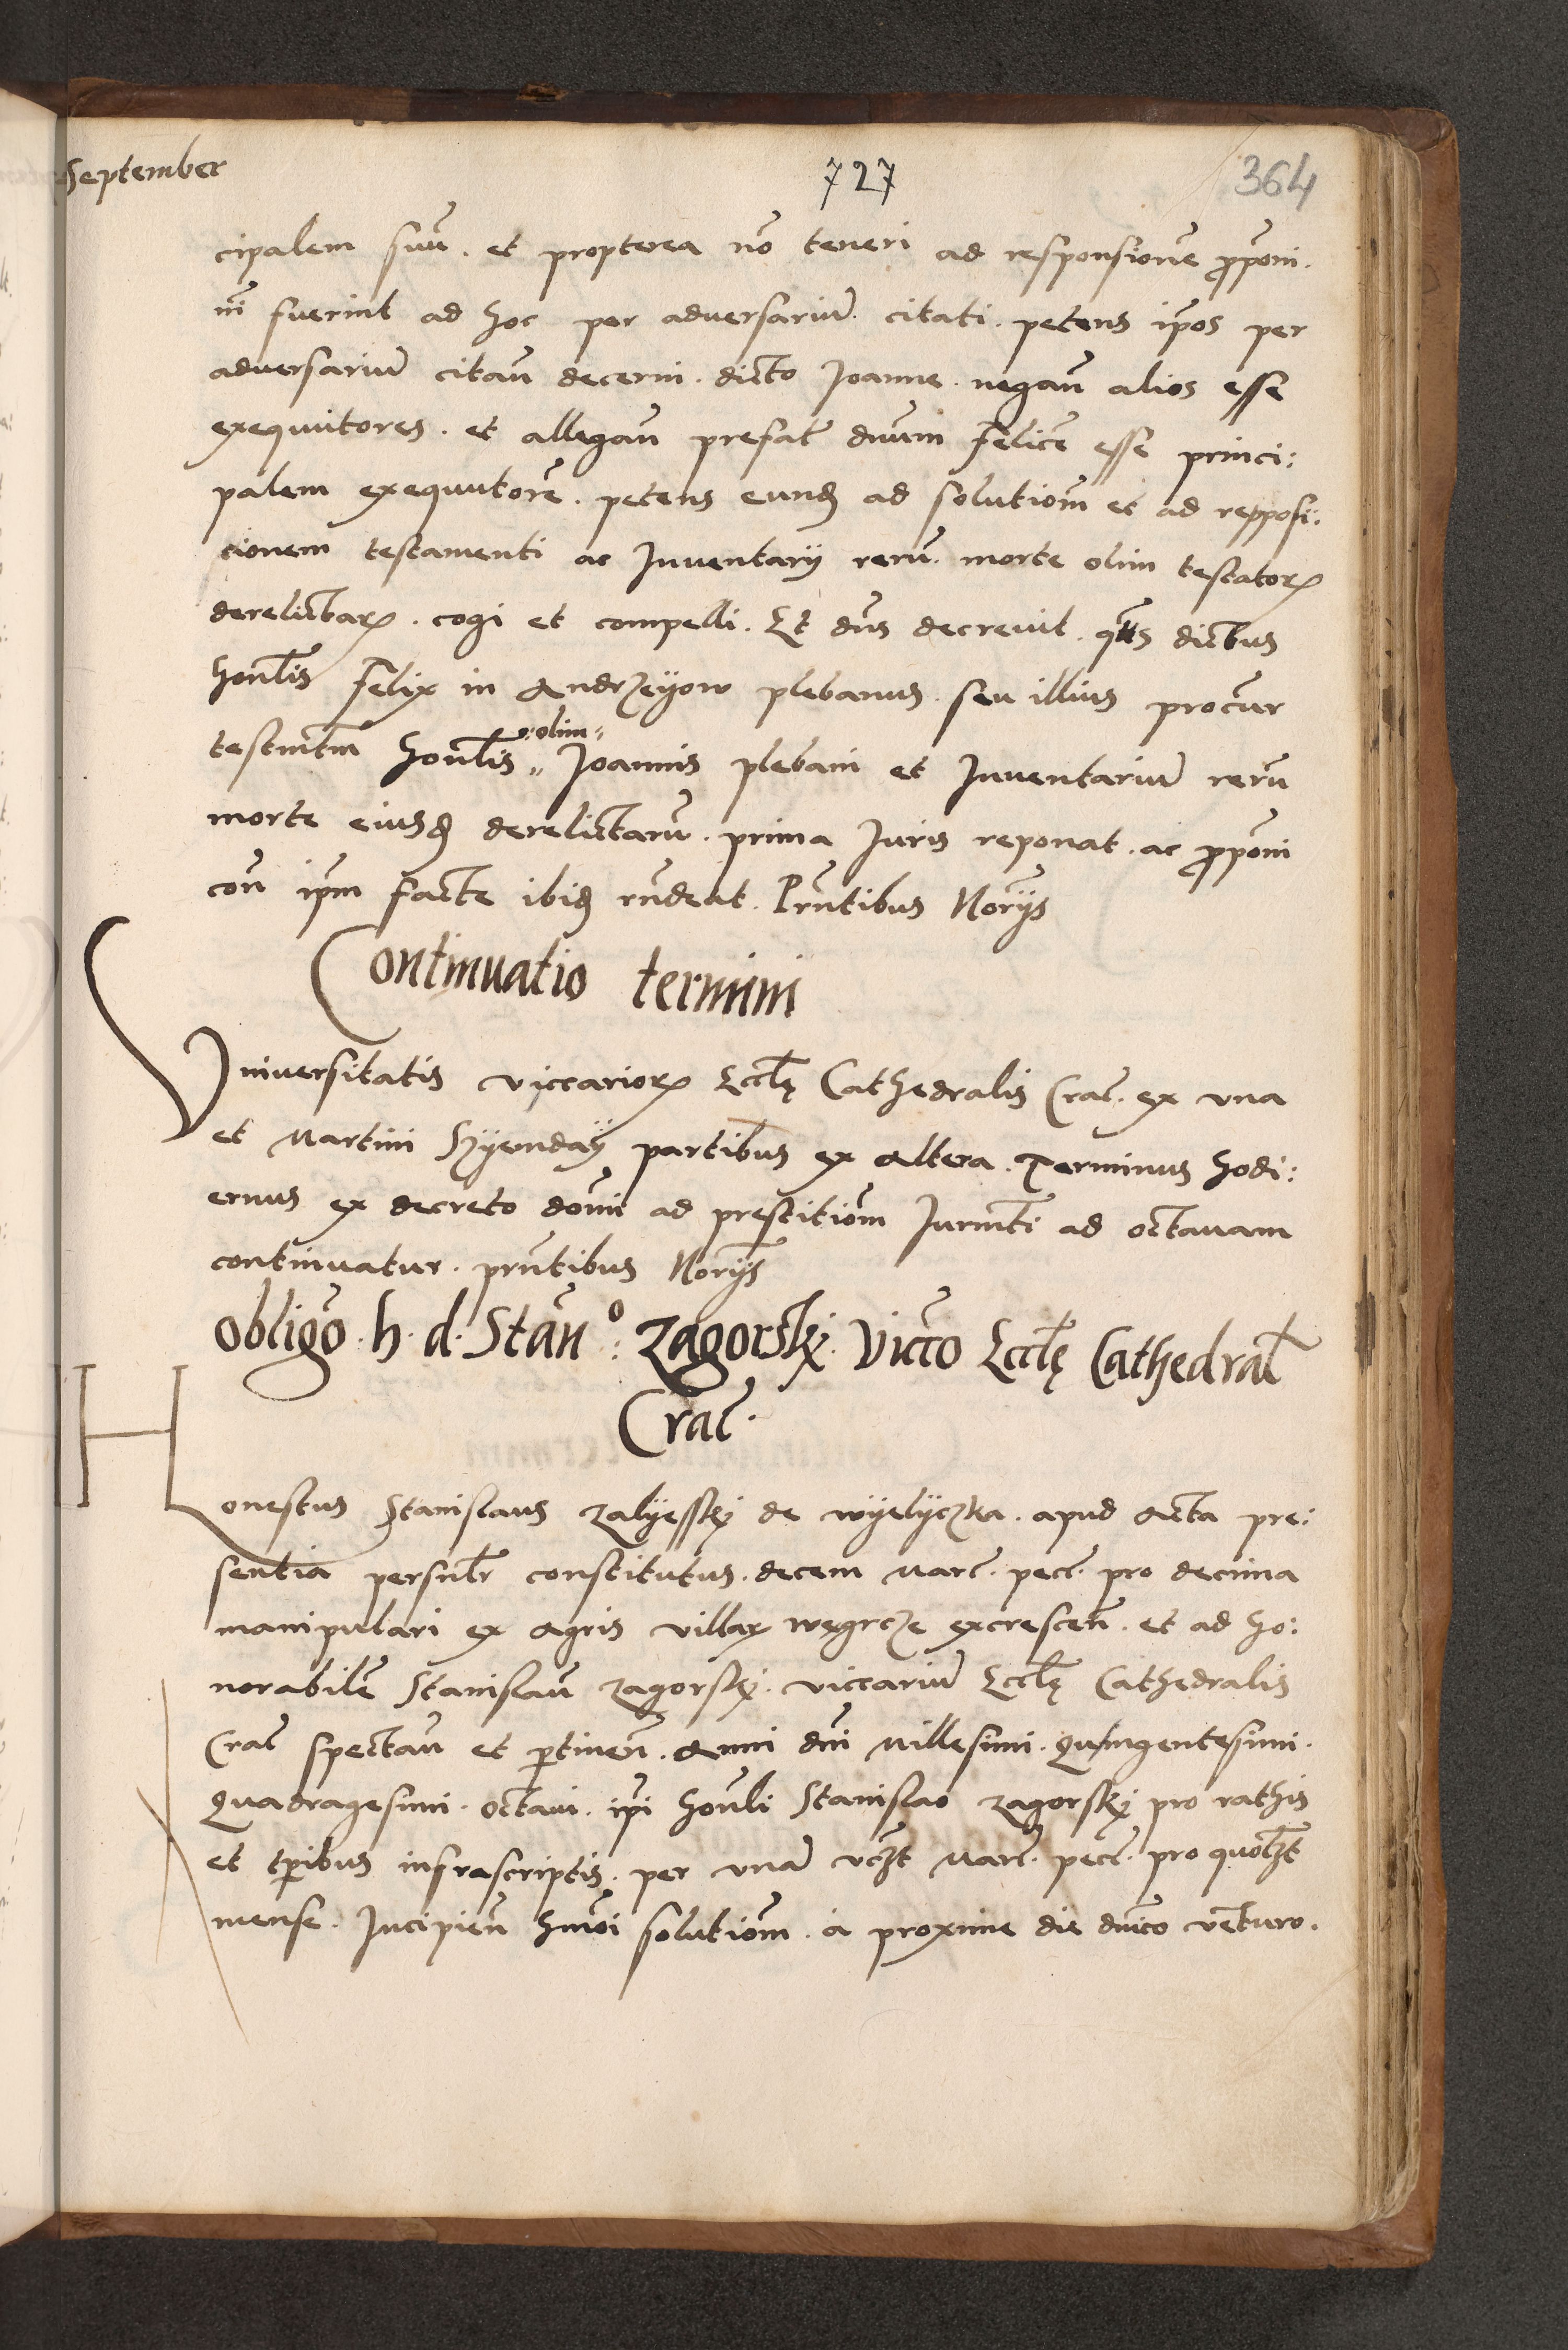 September
727
364
cipalem suū. et propterea nō teneri ad responsionē ꝓpōni.
ni fuerint ad hoc per adversariū citati. petens ip̄os per
adversariū citan̄ decerni. dicto Joanne. negan̄ alios esse
exequutores. et allegan̄ prefat̄ dnum felicē esse princi:
palem exequutorē. petens eund̄ ad solutiom̄ et ad repposi:
cionem testamenti ac Inventarÿ rerū. morte olim testatorꝝ
derelictarꝝ. cogi et compelli. Et dn̄s decrevit. q̄tꝰs dictus
hon̄lis felix in Andrzeÿow plebanus. seu illius procūr
testm̄tm hon̄lis „olim„ Joannis plebani et Inventariū rerū
morte eiusd̄ derelictarū. prima Juris reponat. ac ꝓpōni
con̄ ip̄m facte ibid̄ rn̄deat. Prn̄tibus Norÿs
Continuatio termini
Vniversitatis viccariorꝝ Eccl̄ę Cathedralis Crac̄. ex una
et Martini Szÿenday partibus ex altera. Terminus hodi:
ernus ex decreto domī ad prestitiom̄ Jurm̄ti ad octavam
continuatur. prn̄tibus Norÿs
Obligō. h. d. Stan̄º: Zagorskÿ. Vicc̄o Eccl̄ę Cathedral̄
Crac̄.
Honestus Stanislaus Zalÿesskÿ de wÿelÿczka. apud Acta pre:
sentia personl̄r constitutus. decem Marc̄. pec̄. pro decima
manipulari ex Agris villaꝝ węgrcze excrescen̄. et ad ho:
norabilē Stanislaū Zagorskÿ. viccariū Eccl̄ę Cathedralis
Crac̄ spectan̄ et ꝑtinen̄. Anni dn̄i Millesimi. Quingentesimi.
Quadragesimi. Octavi. ip̄i hon̄li Stanislao Zagorskÿ pro rathis
et tp̄ribus infrascriptis. per unā vcꝫt Marc̄. pec̄. pro quolꝫt
mense. Incipien̄ hm̄oi solutiom̄. a proxime die dn̄ico vēturo.